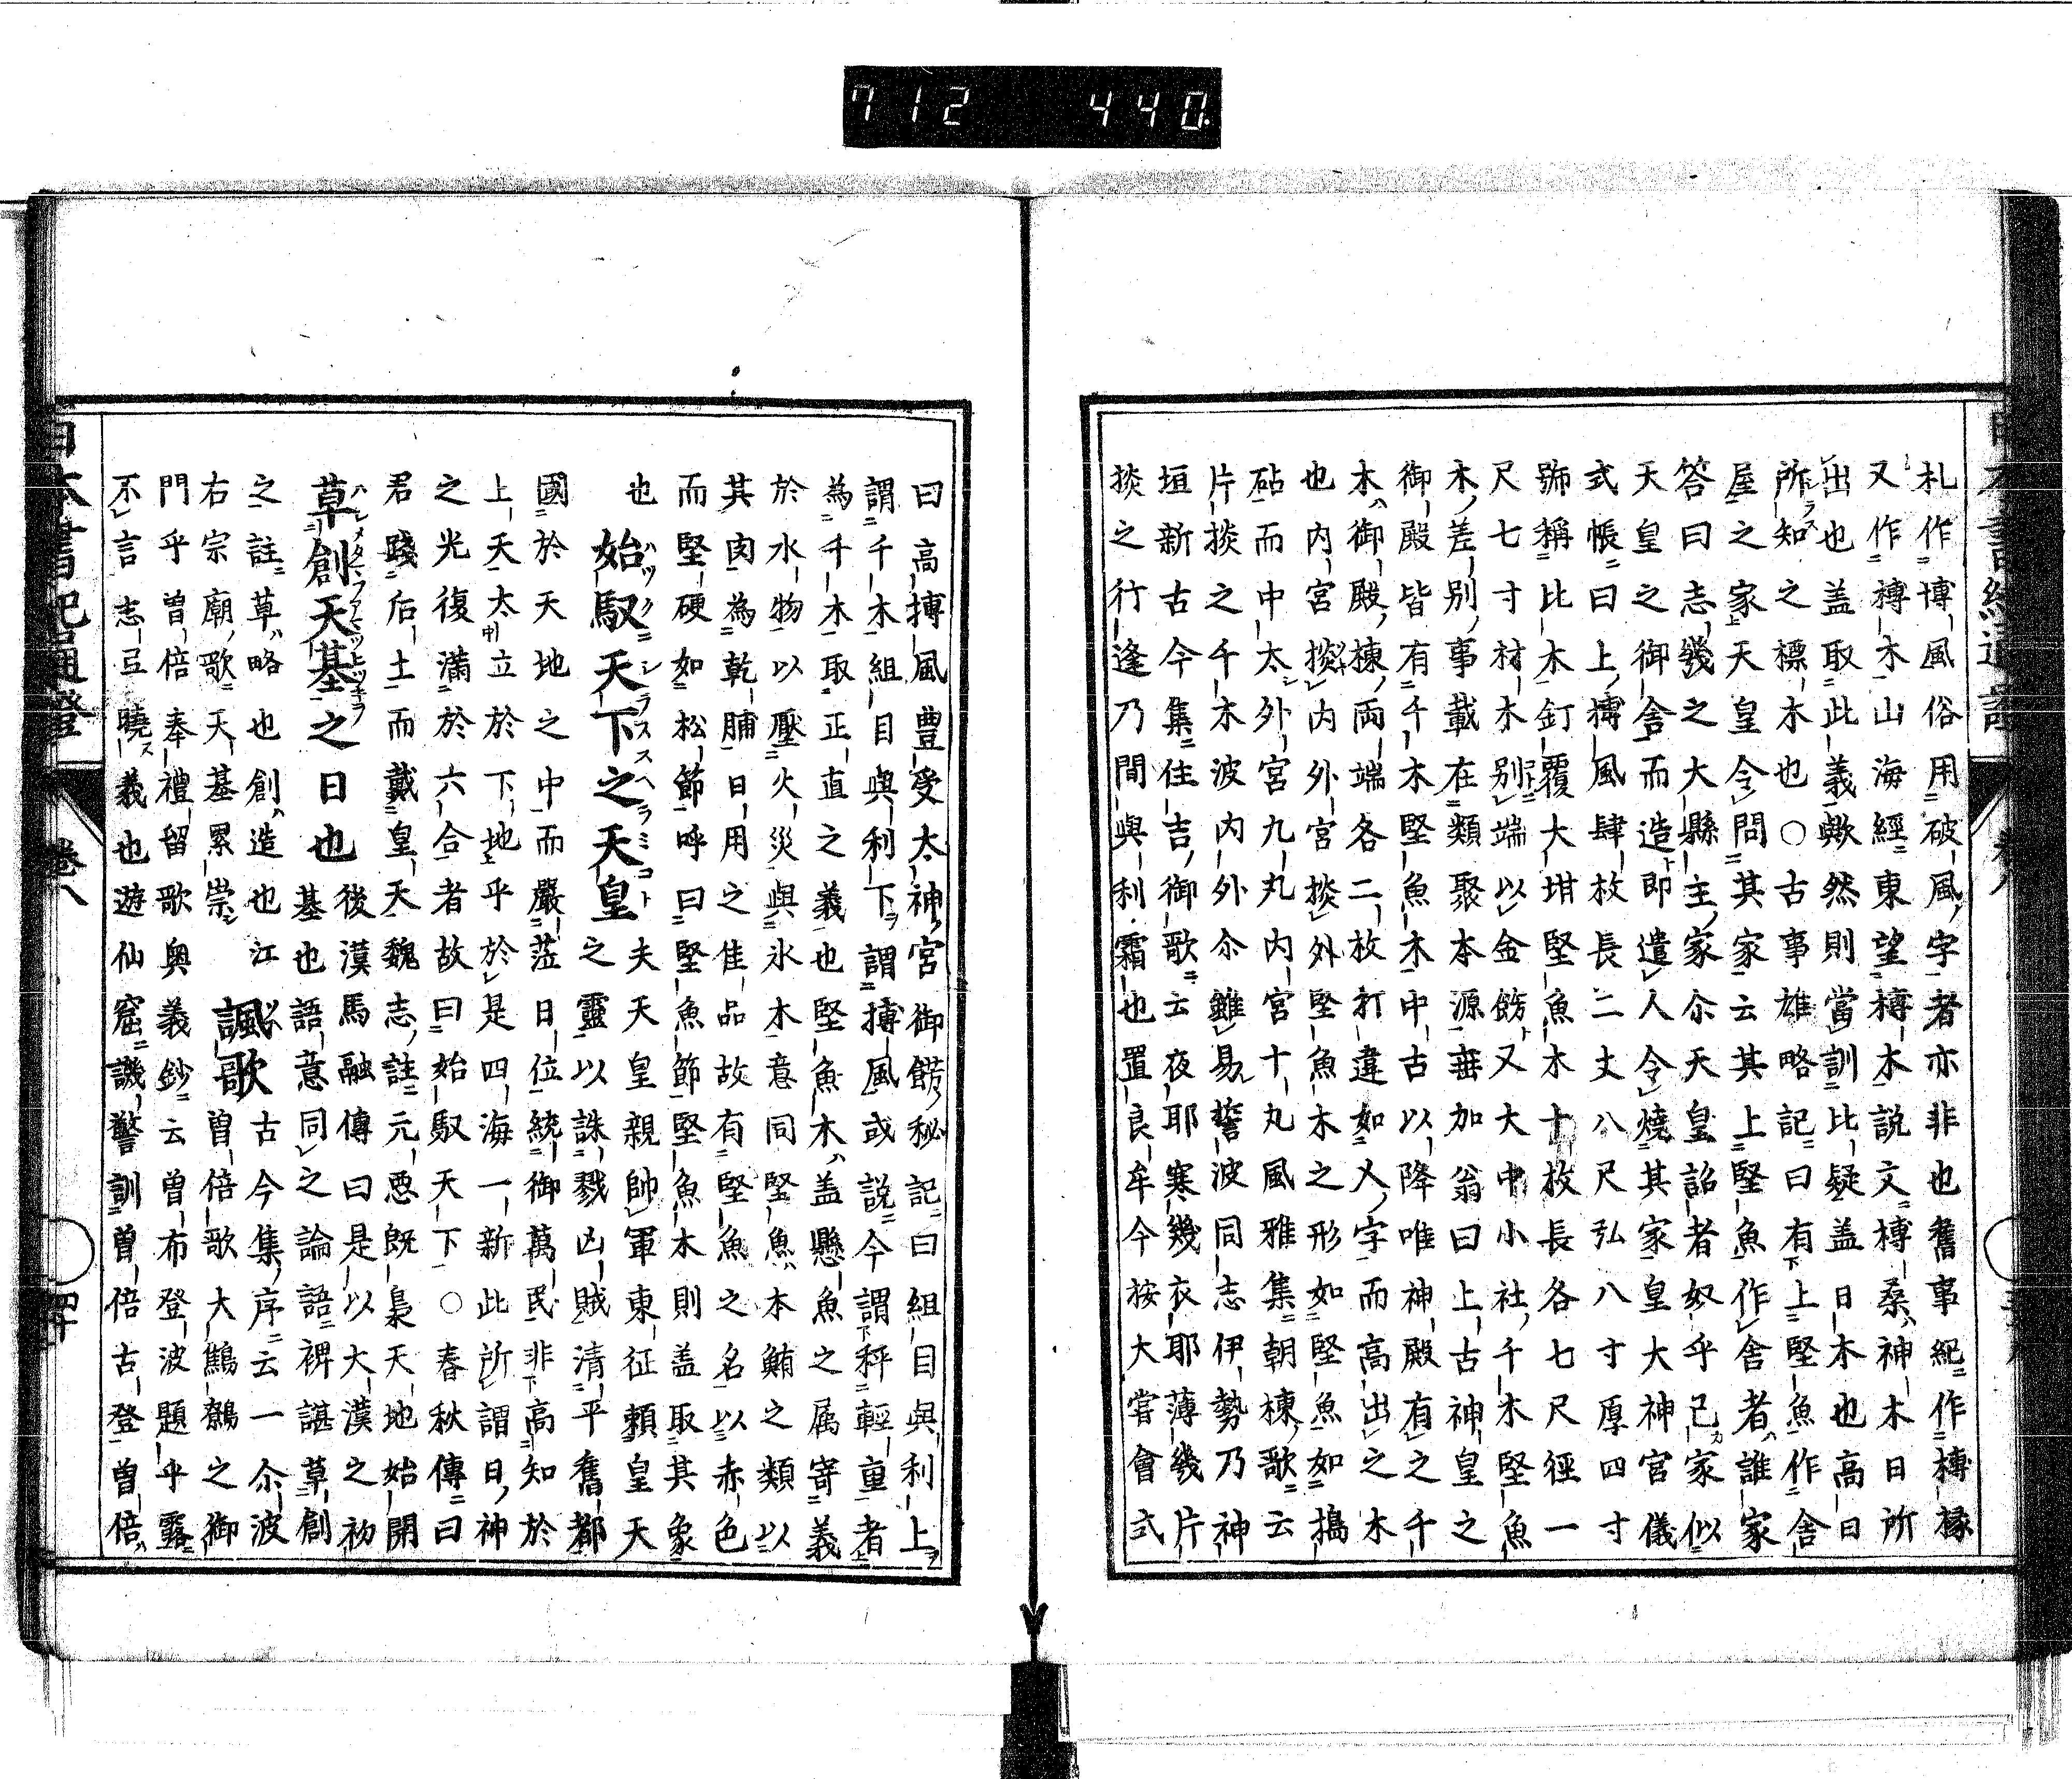 712 440
札作博風俗用破風字者亦非也舊事紀作榑椽
又作榑木山海經東望榑木説文榑桑神木日所
出也盖取此義歟然則當訓比疑盖日木也高日
所知之標木也○古事雄略記曰有上堅魚作舍
屋之家天皇令問其家云其上堅魚作舍者誰家
答曰志幾之大縣主家尒天皇詔者奴乎己家似
天皇之御舍而造即遣人令燒其家皇大神宮儀
式帳曰上榑風肆枚長二丈八尺弘八寸厚四寸
號稱比木釘覆大坩堅魚木十枚長各七尺徑一
尺七寸材木別端以金餝又大中小社千木堅魚
木差別事載在類聚本源垂加翁曰上古神皇之
御殿皆有千木堅魚木中古以降唯神殿有之千
木御殿棟兩端各二枚打違如乂字而高出之木
也内宮掞内外宮掞外堅魚木之形如堅魚如搗
砧而中太外宮九丸内宮十丸風雅集朝棟歌云
片掞之千木波内外尒雖易誓波同志伊勢乃神
垣新古今集住吉御歌云夜耶寒幾衣耶薄幾片
掞之行逢乃間與利霜也置良牟今按大嘗會式
曰高榑風豊受太神宮御餝秘記曰組目與利上
謂千木組目與利下謂榑風或説今謂秤輕重者
為千木取正直之義也堅魚木盖懸魚之属寄義
於水物以壓火災與氷木意同堅魚本鮪之類以
其肉為乾脯日用之佳品故有堅魚之名以赤色
而堅硬如松節呼曰堅魚節堅魚木則盖取其象
也 始馭天下之天皇 夫天皇親帥軍東征頼皇天
之靈以誅戮凶賊清平舊都
國於天地之中而嚴蒞日位統御萬民非高知於
上天太立於下地乎於是四海一新此所謂日神
之光復滿於六合者故曰始馭天下○春秋傳曰
君踐后土而戴皇天魏志註元惡既梟天地始開
草創天基之日也 後漢馬融傳曰是以大漢之初
基也語意同之論語裨諶草創
之註草略也創造也江
右宗廟歌天基累崇 諷歌 古今集序云一尒波
曽倍歌大鷦鷯之御
門乎曽倍奉禮留歌奥義鈔云曽布登波題乎露
不言志弖曉義也遊仙窟譏警訓曽倍古登曽倍
日本書紀通證 卷八 四十